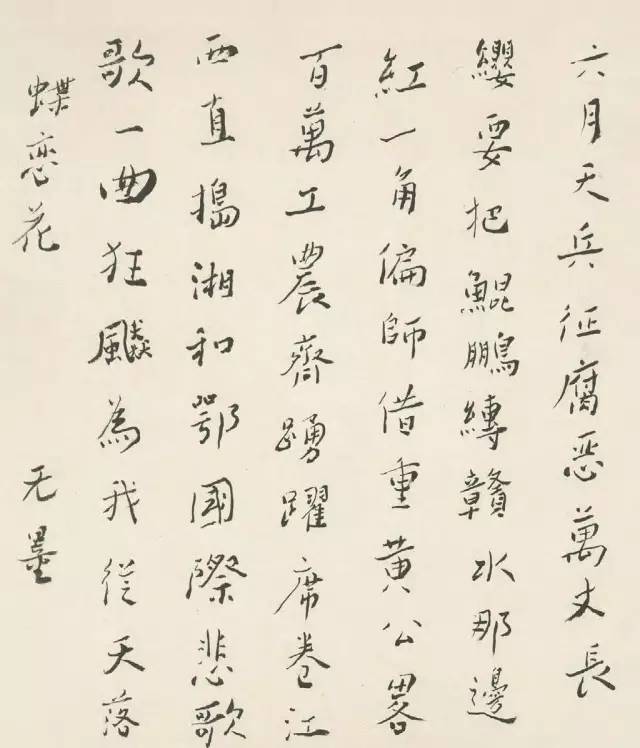 六月天兵征腐惡萬丈長
纓要把鯤鵬縛贛水那邊
紅一角偏師借重黄公畧
百萬工農齊踴躍席卷江
西直搗湘和鄂國際悲歌
歌一曲狂飈為我從天落
蝶恋花 无墨